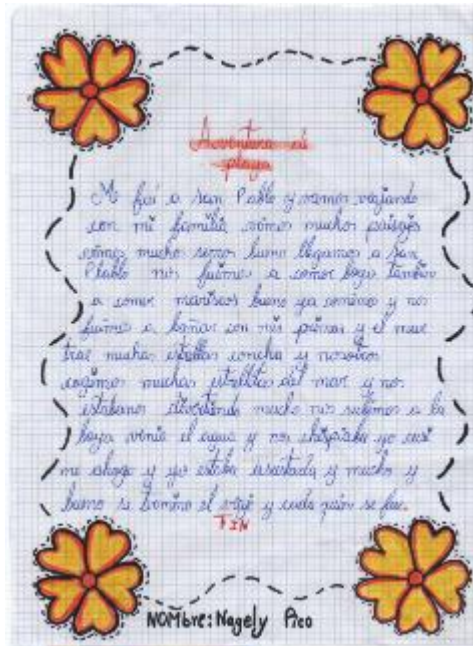 Aventura mi
playa
Me fui a san Pablo y vamos viajando
con mi familia vimos muchos paisajes
vimos mucho serros bueno llegamos a san
Pablo nos fuimos a comer luego tambien
a comer mariscos bueno ya comimos y nos
fuimos a bañar con mis primos y el mar
trae muchas estrellas concha y nosotros
cogimos muchas estrellitas del mar y nos
estabanos divertiendo mucho nos subimos a la
boya venia el agua y nos chispiaba yo casi
me ahogo y yo estaba asustada y mucho y
bueno se termino el viaje y cada quien se fue.
FIN
NOMbre: Nagely Pico